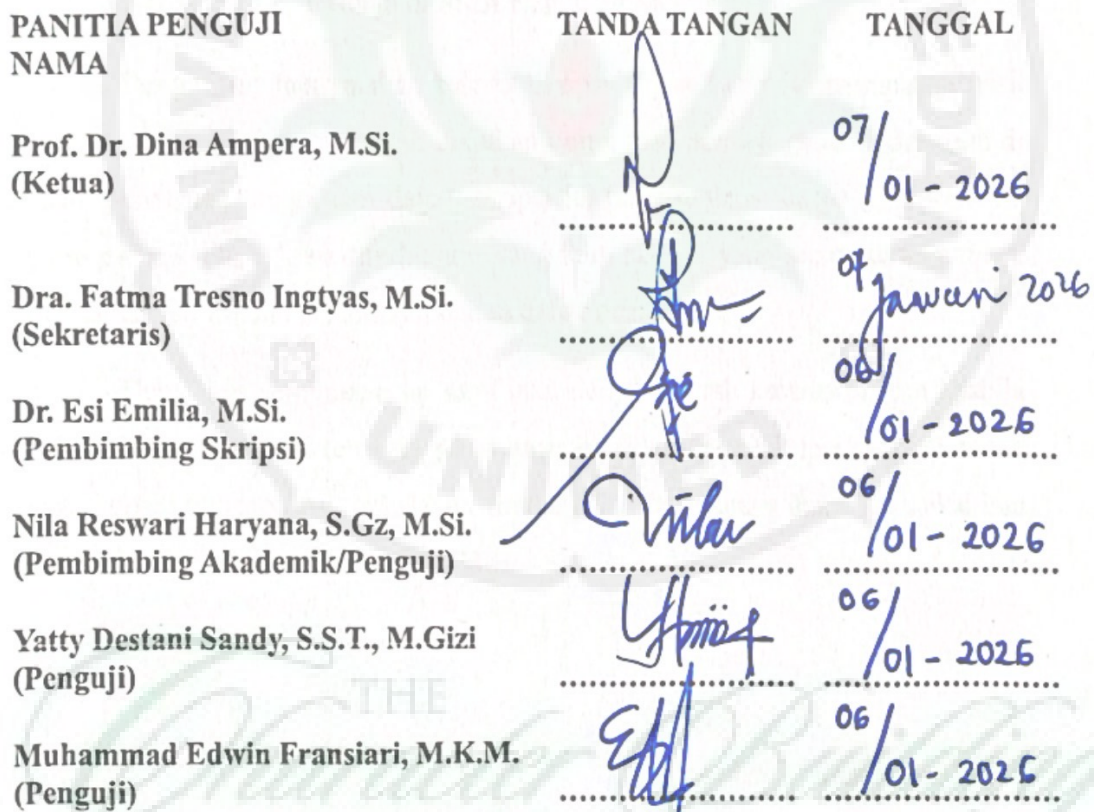 PANITIA PENGUJI TANDA TANGAN TANGGAL
NAMA
Prof. Dr. Dina Ampera, M.Si.
(Ketua)
07/01-2026
Dra. Fatma Tresno Ingtyas, M.Si.
(Sekretaris)
07 Januari 2026
Dr. Esi Emilia, M.Si.
(Pembimbing Skripsi)
06/01-2026
Nila Reswari Haryana, S.Gz, M.Si.
(Pembimbing Akademik/Penguji)
06/01-2026
Yatty Destani Sandy, S.S.T., M.Gizi
(Penguji)
06/01-2026
Muhammad Edwin Fransiari, M.K.M.
(Penguji)
06/01-2026
UNIMED
THE
Character Building